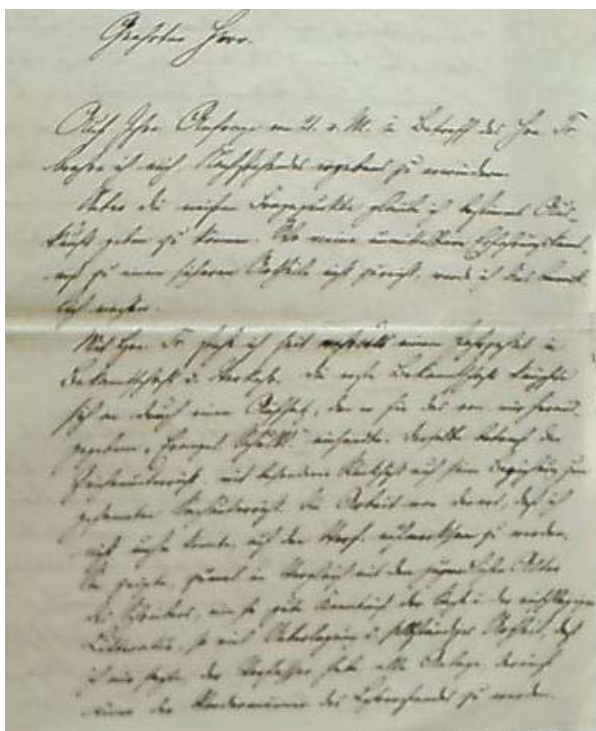 Geehrter Herr.
Auf Ihre Anfrage vom 21. v. M. in Betreff des Hrn. Fr.
ich mich Nachstehendes ergebenst zu erwiedern.
Ueber die meisten Fragepunkte glaube ich bestimmte Aus-
kunft geben zu können. Wo meine unmittelbare
zu einem sicheren Urtheile nicht zureicht, werde ich das
lich machen.
Mit Hrn. Fr. stehe ich seit einem in
Bekanntschaft u. Verkehr. Die erste Bekanntschaft knüpfte
sich an durch einen Aufsatz, den er für das von mir heraus-
gegebene „Evangel. einsandte. Derselbe betraf den
Zeichenunterricht, mit besonderer Rücksicht auf seine Beziehung zum
gesammten Die Arbeit war derart, daß ich
nicht konnte, auf den Verf. aufmerksam zu werden.
Sie zeigte, zumal im Vergleich mit dem jugendlichen Alter
des Schreibers, eine so gute Kenntniß der Sache u. der einschlägigen
Litteratur, so viel Ueberlegung u. selbständiges Urtheil, daß
ich mir sagte, der Verfasser habe alle Anlage
einer der des Lehrerstandes zu werden.